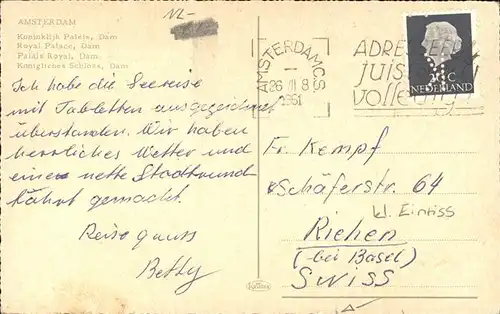 NL-
AMSTERDAM
Koninklijk Paleis, Dam
Royal Palace, Dam
Palais Royal, Dam
Königliches Schloss, Dam
Ich habe die Seereise
mit Tabletten ausgezeichnet
überstanden. Wir haben
herrliches Wetter und
eine nette Stadtrund
fahrt gemacht.
Reisegruss
Betty
AMSTERDAM CS
26 VII 8
1961
ADRESSEER
JUIST
volledig
C
NEDERLAND
Fr. Kempf
Schäferstr. 64
kl. Einriss
Riehen
(bei Basel)
SWISS